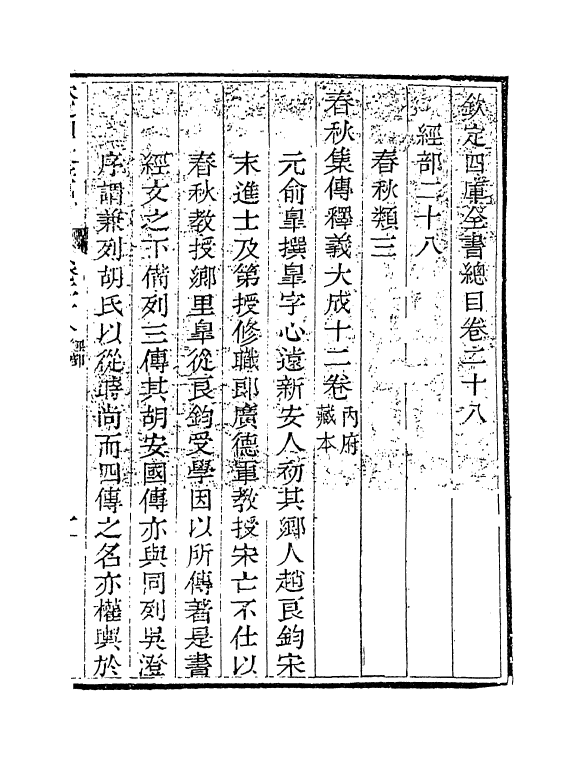 欽定四庫全書總目卷二十八
經部二十八
春秋類三
春秋集傳釋義大成十二卷內府藏本
元俞臯撰臯字心遠新安人初其鄉人趙良鈞宋
末進士及第授修職郎廣德軍教授宋亡不仕以
春秋教授鄉里臯從良鈞受學因以所傳著是書
經文之下備列三傳其胡安國傳亦與同列吳澄
序謂兼列胡氏以從時尚而四傳之名亦權輿於